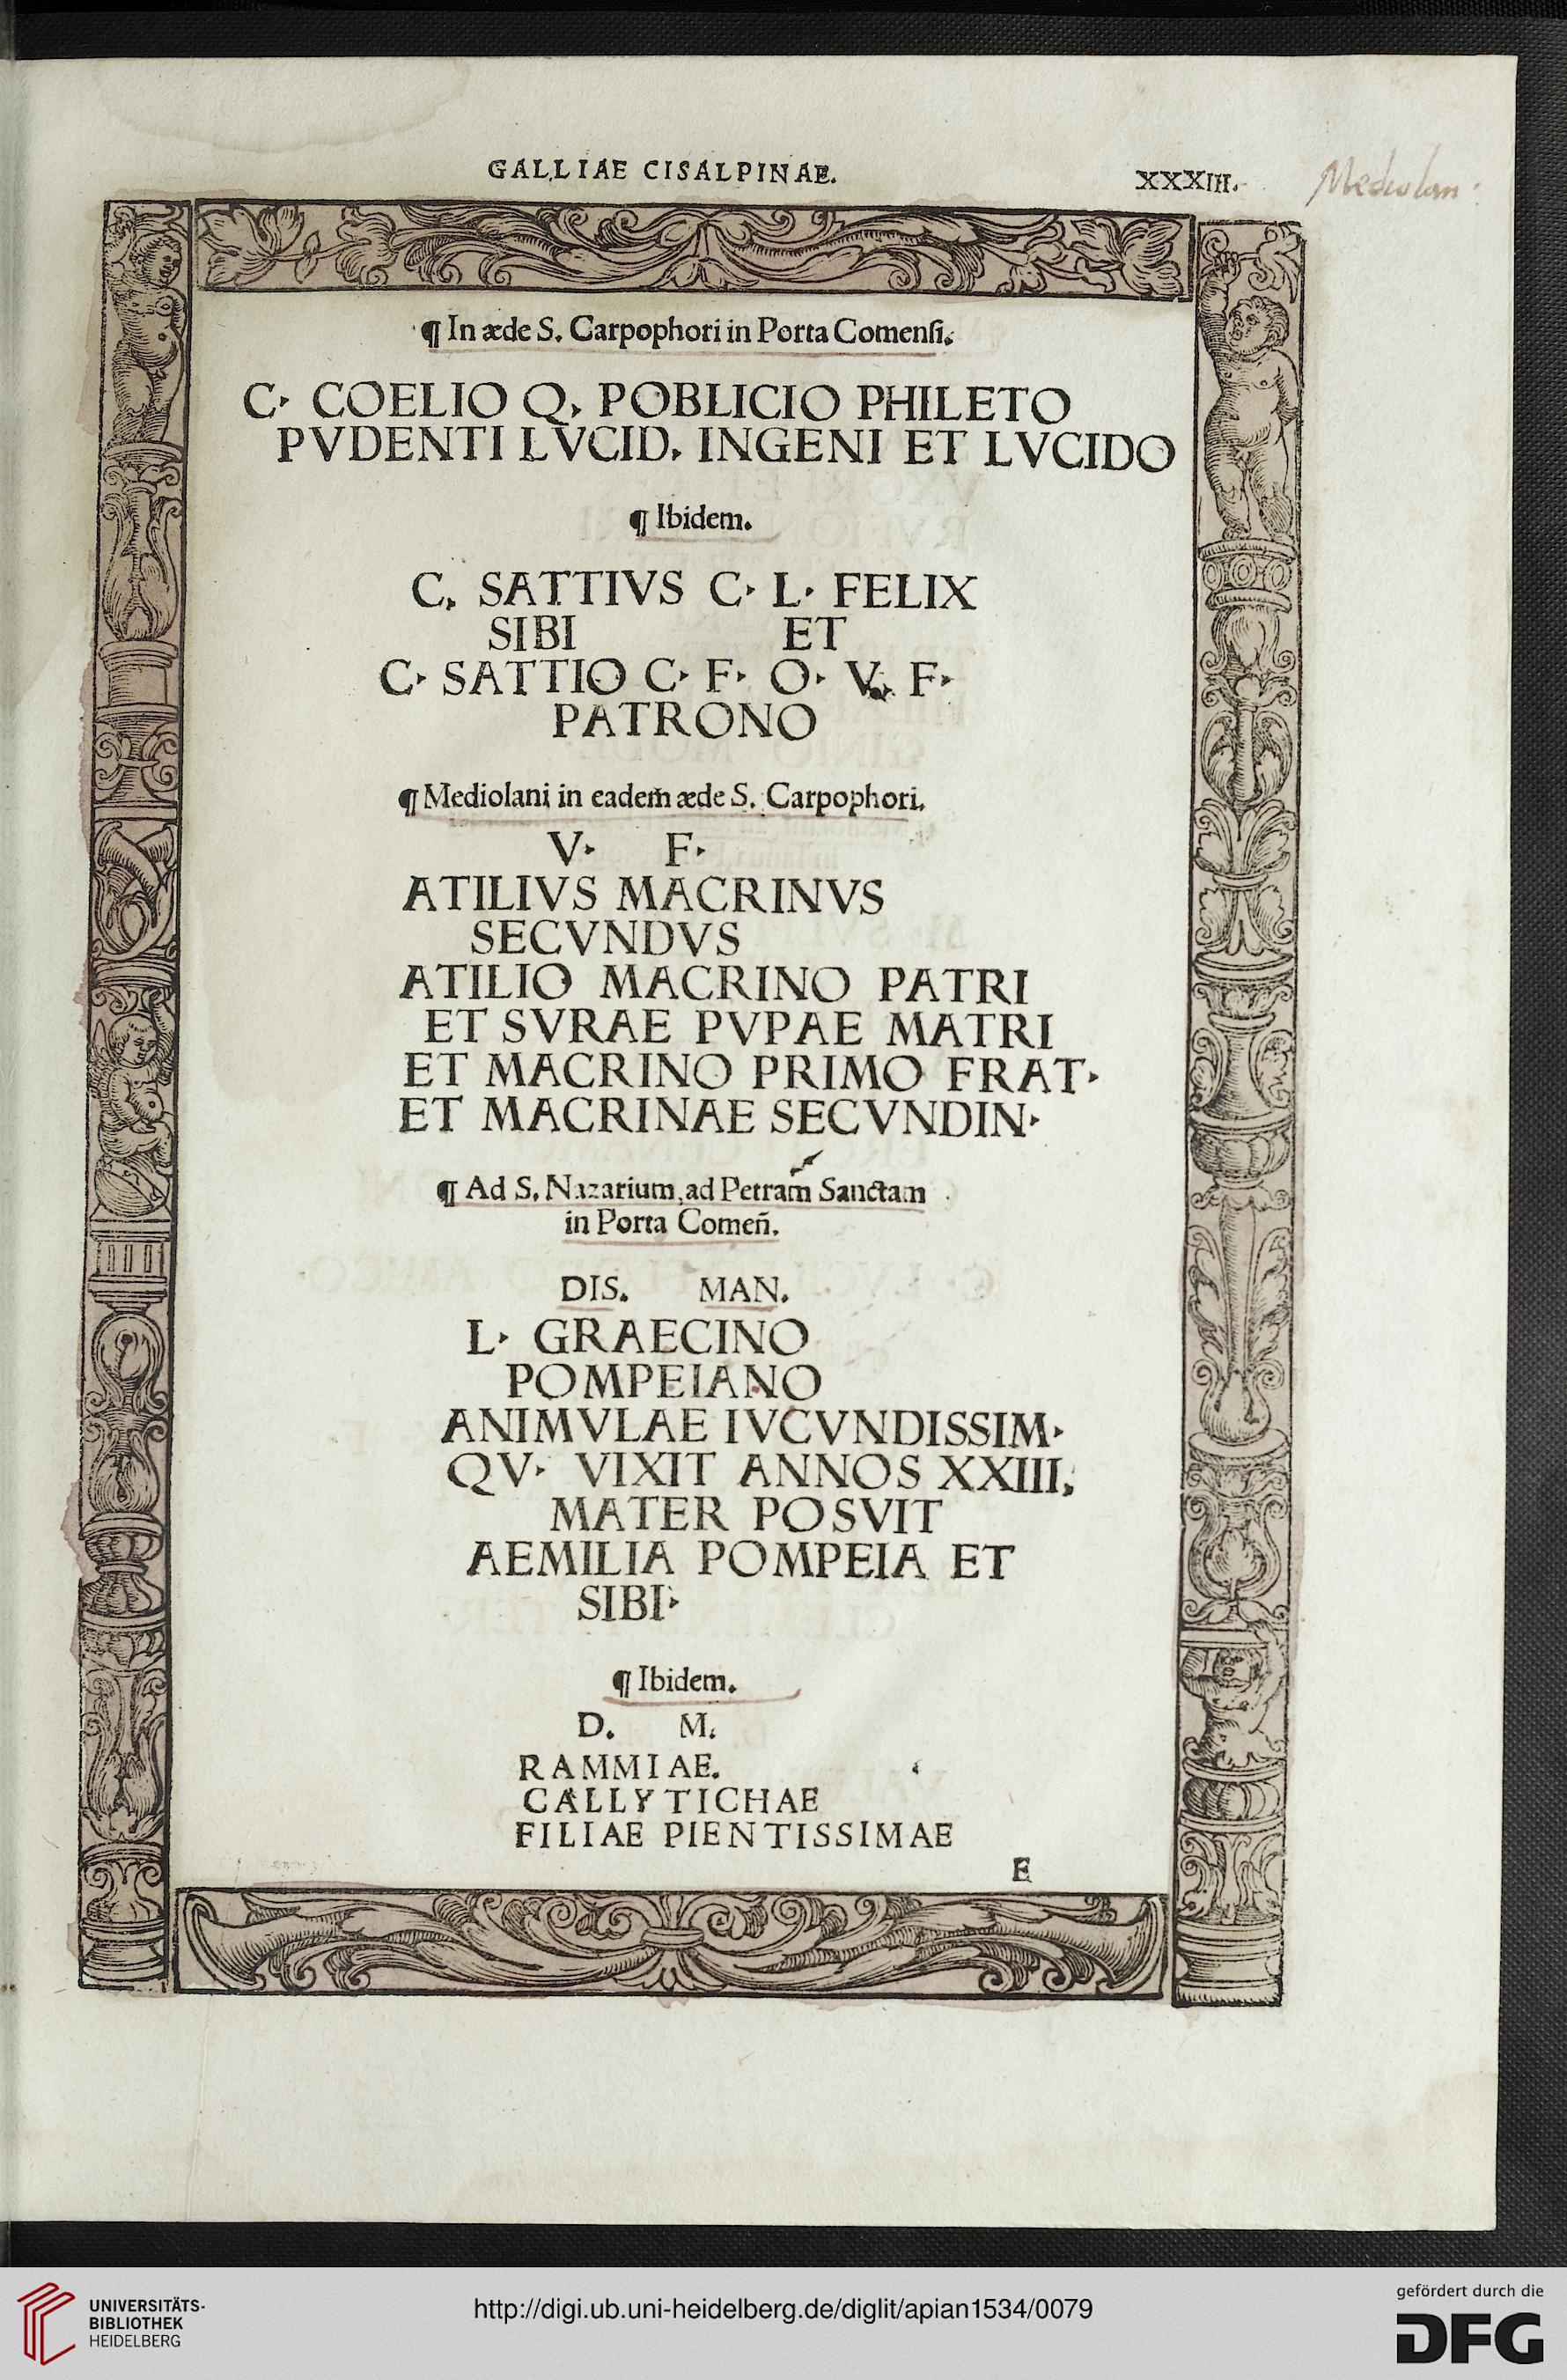 GALLIAE CISALPINAE.
XXXIII.
Mediolan:
¶ In æde S. Carpophori in Porta Comenſi.
C· COELIO Q, POBLICIO PHILETO
PVDENTI LVCID. INGENI ET LVCIDO
¶ Ibidem.
C, SATTIVS C· L· FELIX
SIBI ET
C· SATTIO C· F· O· V. F·
PATRONO
¶ Mediolani in eadem æde S. Carpophori.
V· F·
ATILIVS MACRINVS
SECVNDVS
ATILIO MACRINO PATRI
ET SVRAE PVPAE MATRI
ET MACRINO PRIMO FRAT·
ET MACRINAE SECVNDIN·
¶ Ad S. Nazarium, ad Petram Sanctam
in Porta Comeñ.
DIS. MAN.
L· GRAECINO
POMPEIANO
ANIMVLAE IVCVNDISSIM·
QV· VIXIT ANNOS XXIII,
MATER POSVIT
AEMILIA POMPEIA ET
SIBI·
¶ Ibidem.
D. M.
RAMMIAE.
CALLYTICHAE
FILIAE PIENTISSIMAE
E
UNIVERSITÄTS-
BIBLIOTHEK
HEIDELBERG
http://digi.ub.uni-heidelberg.de/diglit/apian1534/0079
gefördert durch die
DFG